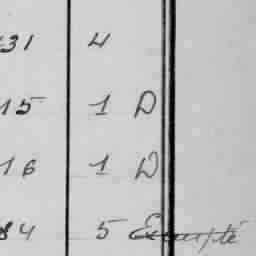 31 4
15 1 D
16 1 D
84 5 Exempté